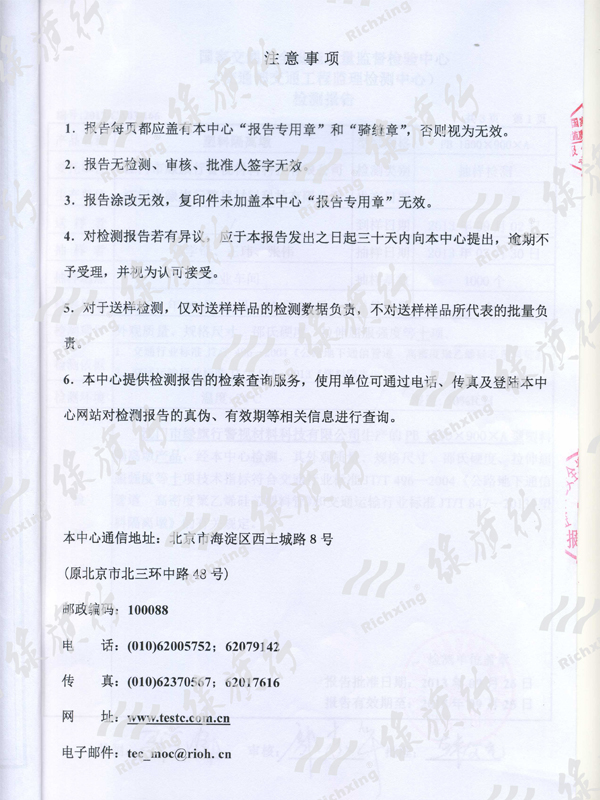 注意事项
1．报告每页都应盖有本中心“报告专用章”和“骑缝章”，否则视为无效。
2．报告无检测、审核、批准人签字无效。
3．报告涂改无效，复印件未加盖本中心“报告专用章”无效。
4．对检测报告若有异议，应于本报告发出之日起三十天内向本中心提出，逾期不
予受理，并视为认可接受。
5．对于送样检测，仅对送样样品的检测数据负责，不对送样样品所代表的批量负
责。
6．本中心提供检测报告的检索查询服务，使用单位可通过电话、传真及登陆本中
心网站对检测报告的真伪、有效期等相关信息进行查询。
本中心通信地址：北京市海淀区西土城路 8 号
(原北京市北三环中路 48 号)
邮政编码：100088
电　　话：(010)62005752；62079142
传　　真：(010)62370567；62017616
网　　址：www.testc.com.cn
电子邮件：tec_moc@rioh.cn
绿旗行
Richxing